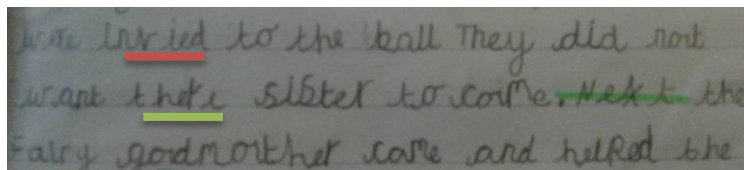 were invied to the ball They did not
want there sister to come. Next the
Fairy godmother came and helped the